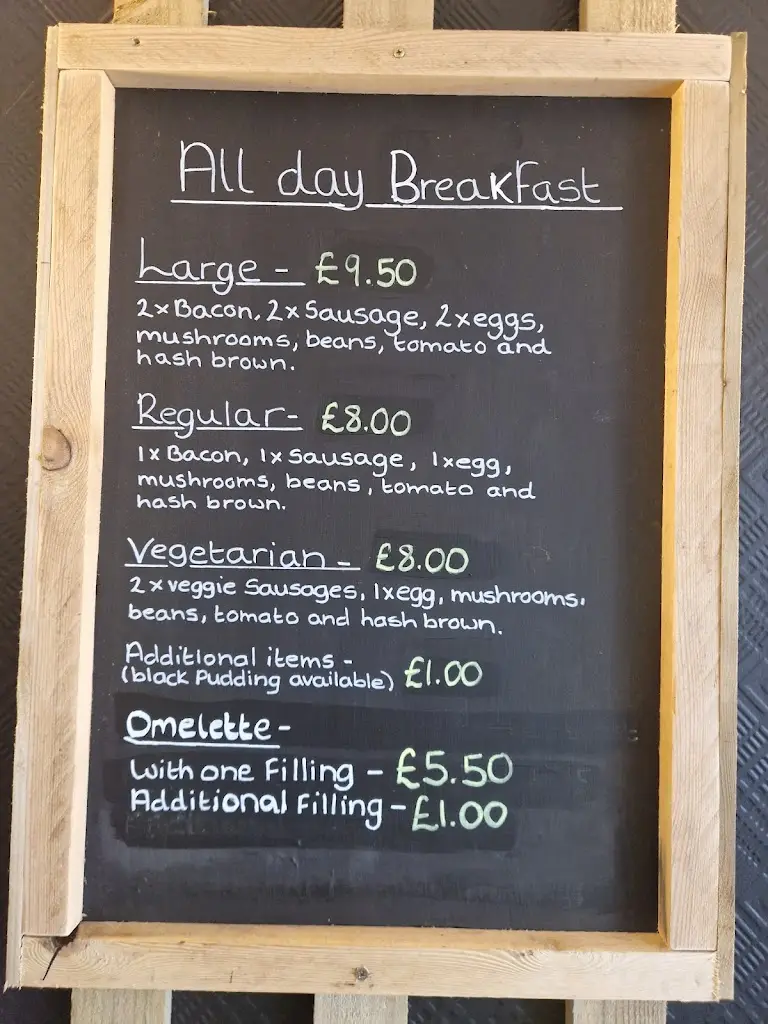 All day Breakfast
Large - £9.50
2x Bacon, 2x Sausage, 2x eggs,
mushrooms, beans, tomato and
hash brown.
Regular- £8.00
1x Bacon, 1x Sausage, 1x egg,
mushrooms, beans, tomato and
hash brown.
Vegetarian - £8.00
2x veggie Sausages, 1x egg, mushrooms,
beans, tomato and hash brown.
Additional items -
(black Pudding available) £1.00
Omelette -
with one Filling - £5.50
Additional Filling - £1.00